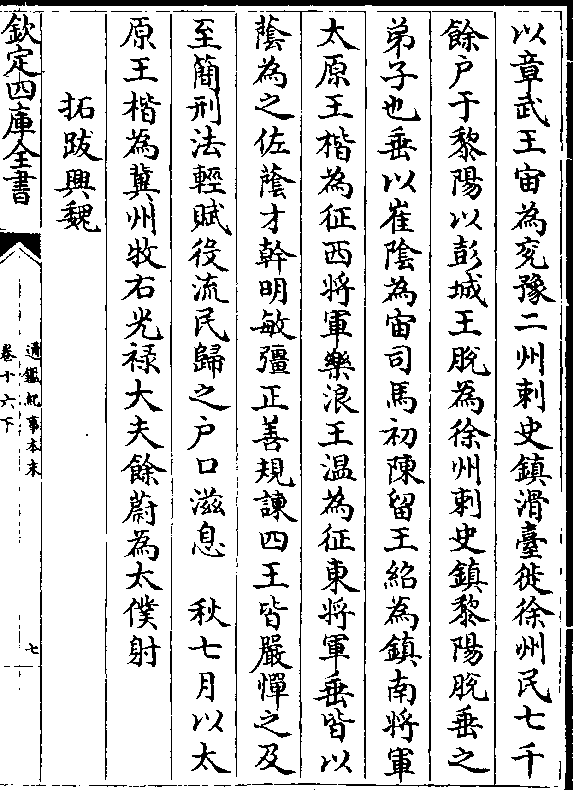 以章武王宙為兖豫二州刺史鎮滑臺徙徐州民七千
餘戸于黎陽以彭城王脫為徐州刺史鎮黎陽脫垂之
弟子也垂以崔陰為宙司馬初陳留王紹為鎮南將軍
太原王楷為征西將軍樂浪王温為征東將軍垂皆以
蔭為之佐蔭才幹明敏彊正善規諫四王皆嚴憚之及
至簡刑法輕賦役流民歸之户口滋息　秋七月以太
原王楷為冀州牧右光禄大夫餘蔚為太僕射
拓跋興魏
欽定四庫全書
通鑑紀事本末
卷十六下
七